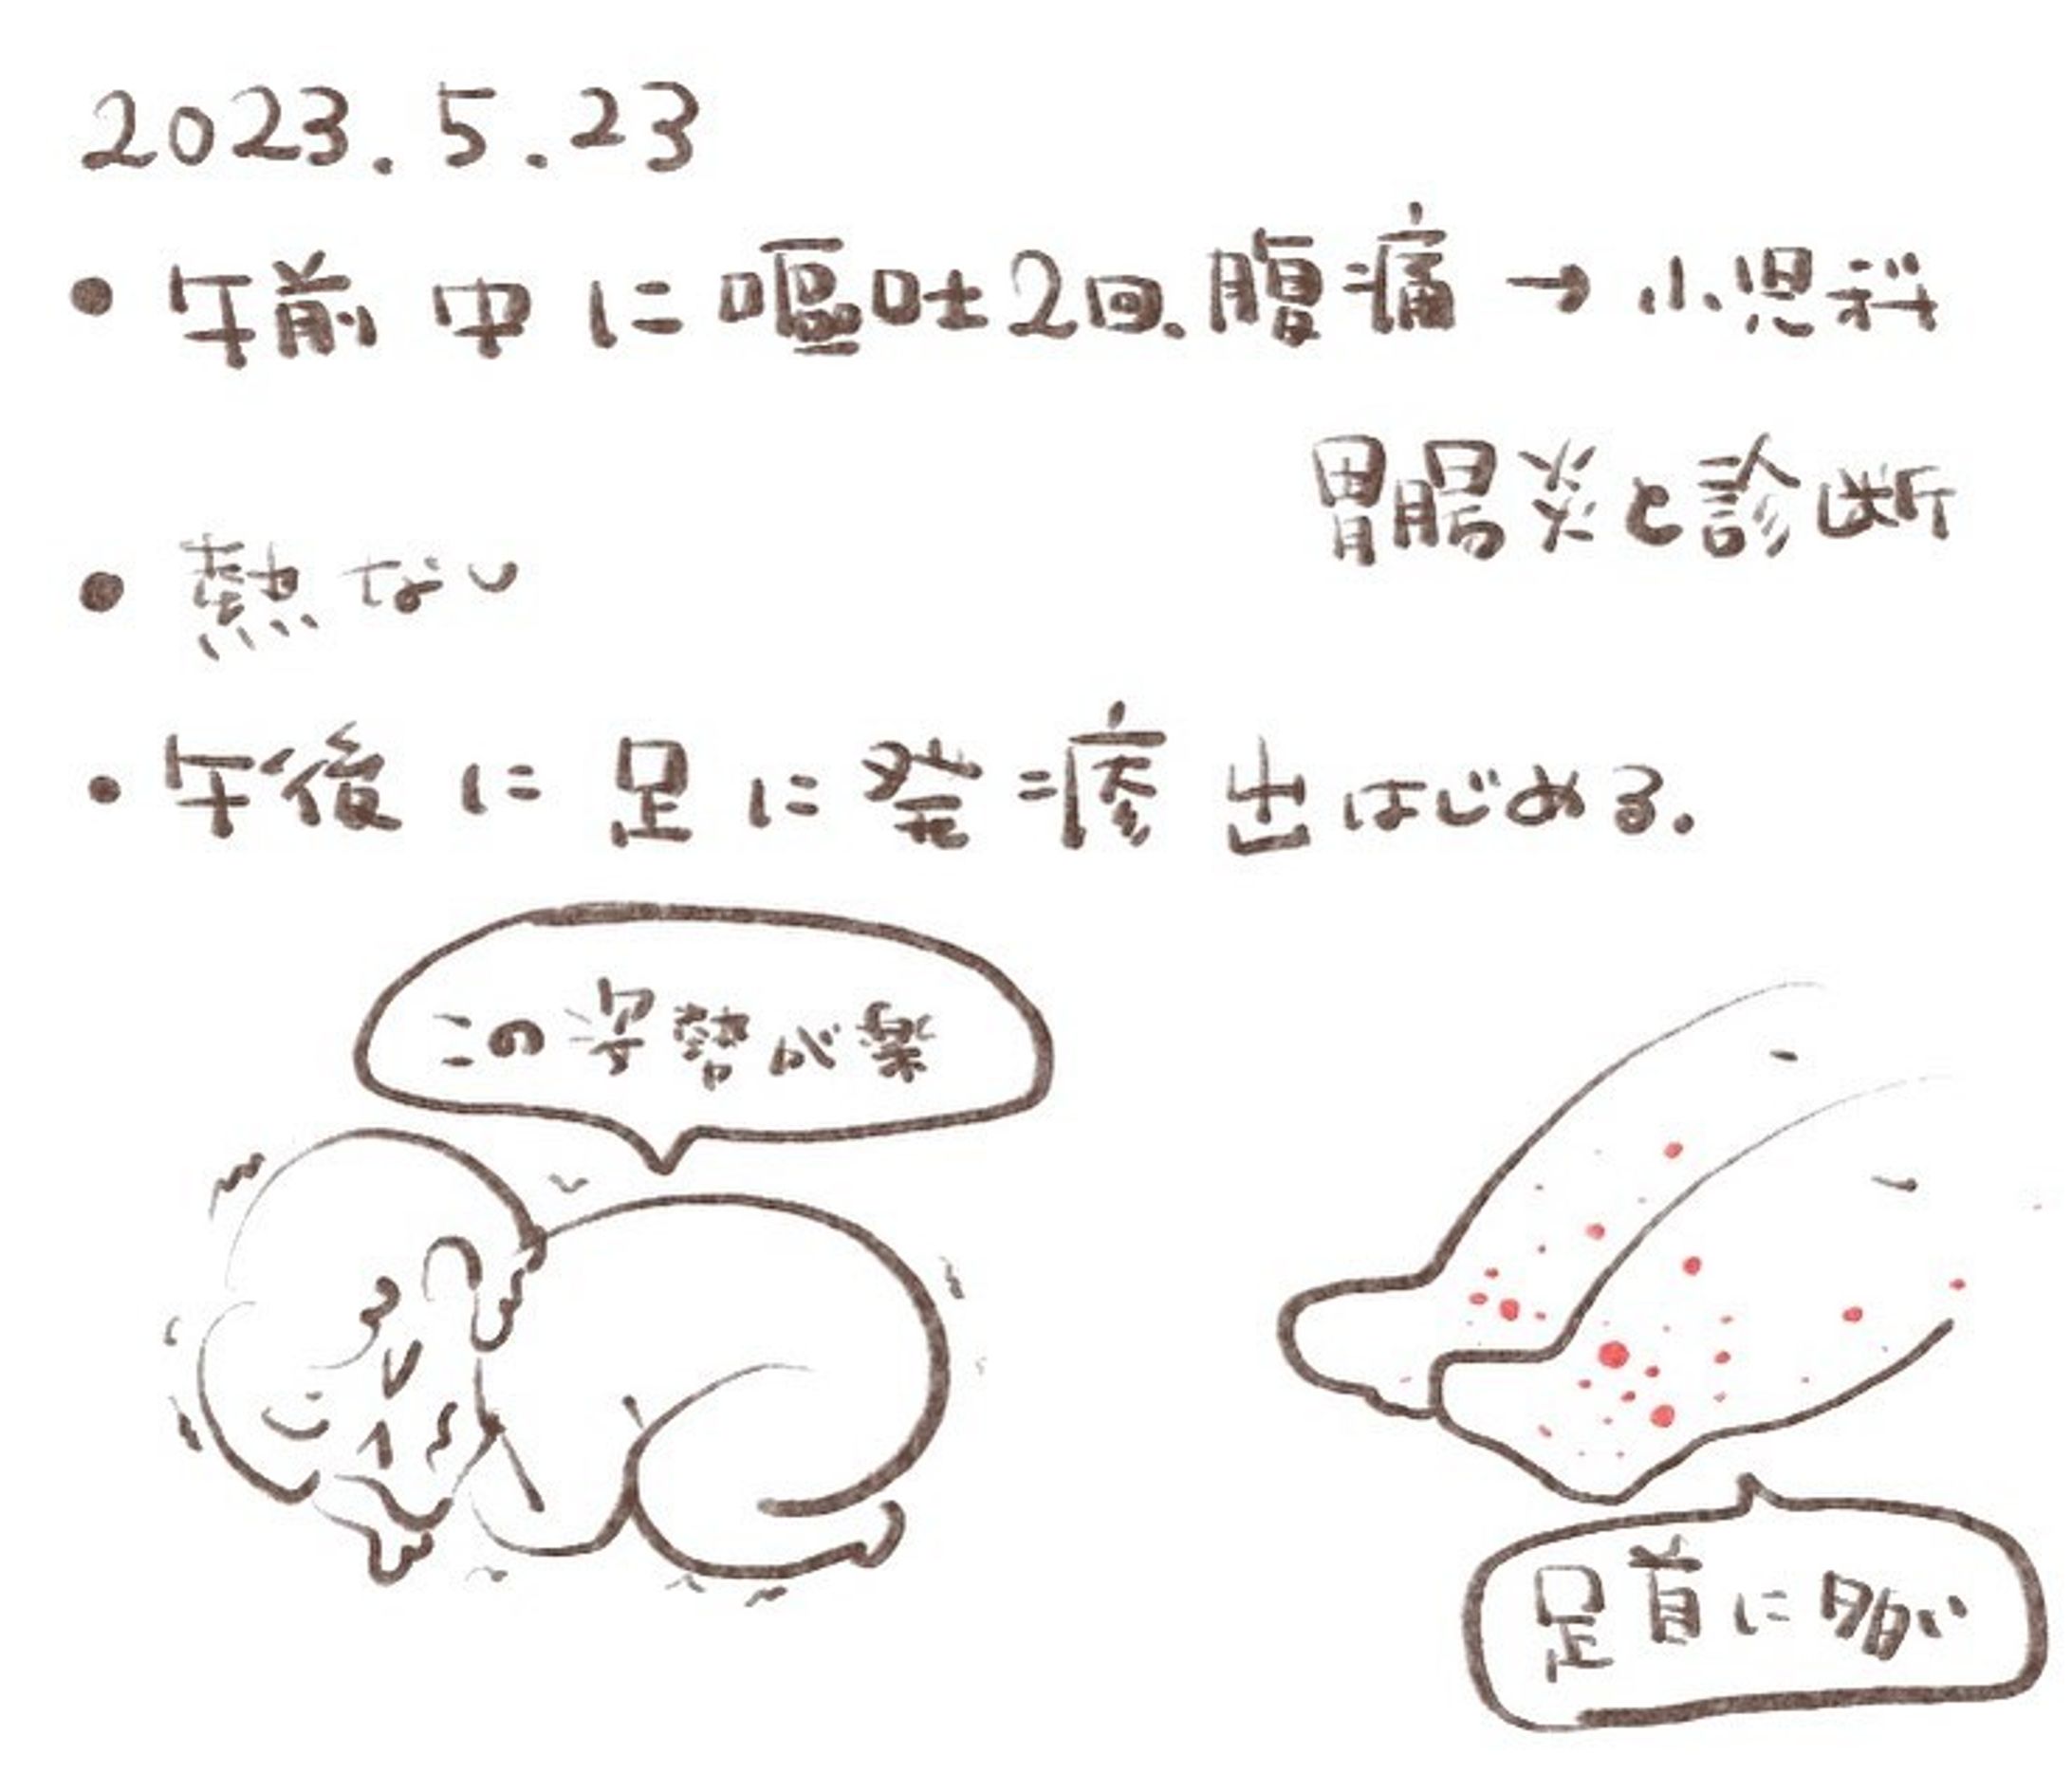 2023.5.23
• 午前中に嘔吐2回、腹痛→小児科
胃腸炎と診断
• 熱ない
• 午後に足に発疹出はじめる.
この姿勢が楽
足首に多い